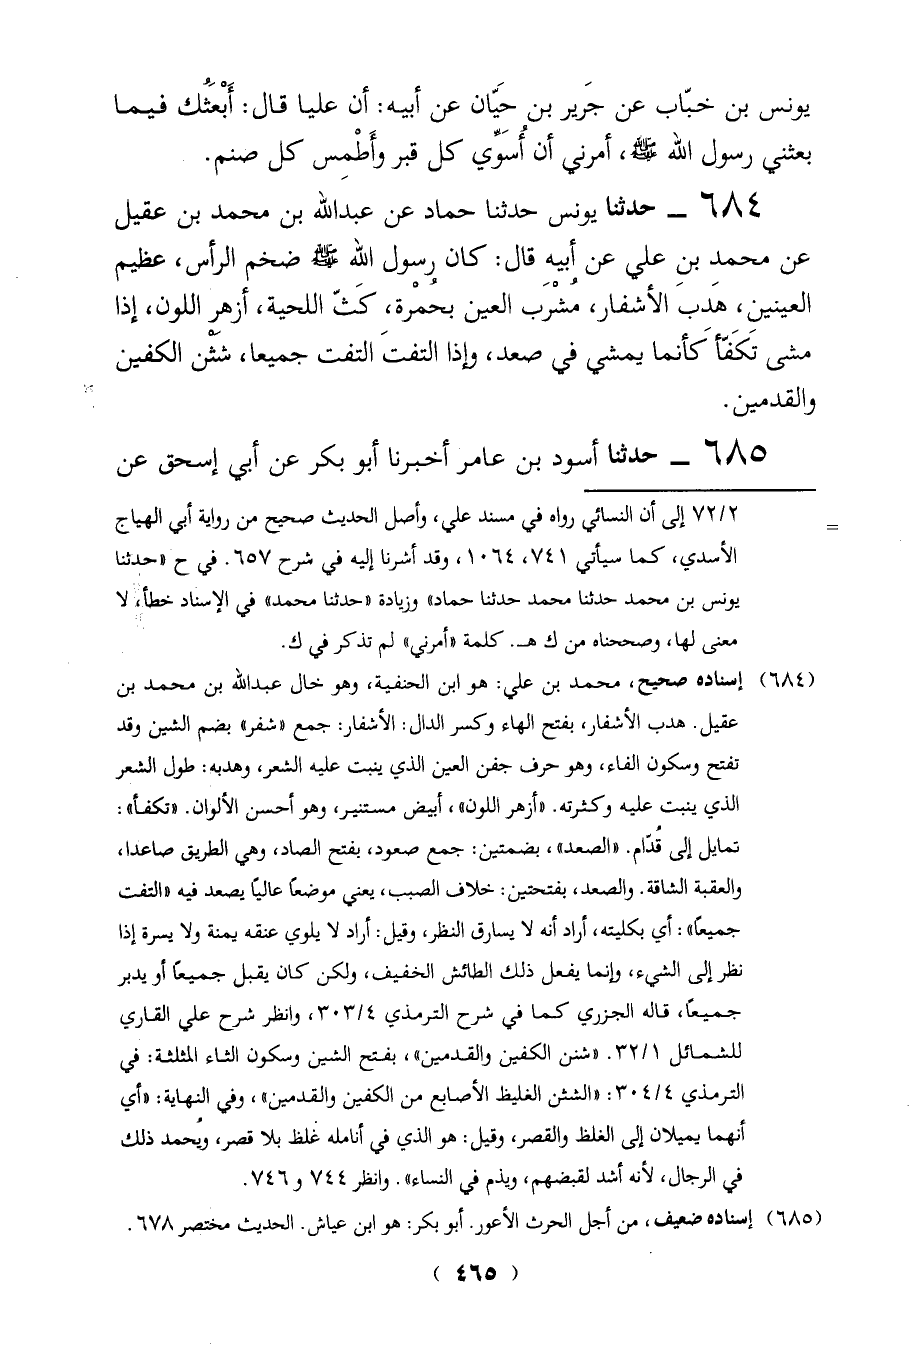 يونس بن خبّاب عن جَرير بن حَيَّان عن أبيه: أن عليا قال: أَبْعَثُك فيما
بعثني رسول الله ﷺ، أمرني أن أُسَوِّي كل قبر وأَطْمِس كل صنم.
٦٨٤ ــ حدثنا يونس حدثنا حماد عن عبدالله بن محمد بن عقيل
عن محمد بن علي عن أبيه قال: كان رسول الله ﷺ ضخم الرأس، عظيم
العينين، هَدِب الأشفار، مُشْرَب العين بحُمْرة، كَثّ اللحية، أزهر اللون، إذا
مشى تَكَفّأ كأنما يمشي في صعد، وإذا التفت التفت جميعا، شَثْن الكفين
والقدمين.
٦٨٥ ــ حدثنا أسود بن عامر أخبرنا أبو بكر عن أبي إسحق عن
= ٧٢/٢ إلى أن النسائي رواه في مسند علي، وأصل الحديث صحيح من رواية أبي الهياج
الأسدي، كما سيأتي ٧٤١، ١٠٦٤، وقد أشرنا إليه في شرح ٦٥٧. في ح «حدثنا
يونس بن محمد حدثنا محمد حدثنا حماد» وزيادة «حدثنا محمد» في الإسناد خطأ، لا
معنى لها، وصححناه من ك هـ. كلمة «أمرني» لم تذكر في ك.
(٦٨٤) إسناده صحيح، محمد بن علي: هو ابن الحنفية، وهو خال عبدالله بن محمد بن
عقيل. هدب الأشفار، بفتح الهاء وكسر الدال: الأشفار: جمع «شفر» بضم الشين وقد
تفتح وسكون الفاء، وهو حرف جفن العين الذي ينبت عليه الشعر، وهدبه: طول الشعر
الذي ينبت عليه وكثرته. «أزهر اللون»، أبيض مستنير، وهو أحسن الألوان. «تكفأ»:
تمايل إلى قُدّام. «الصعد»، بضمتين: جمع صعود، بفتح الصاد، وهي الطريق صاعدا،
والعقبة الشاقة. والصعد، بفتحتين: خلاف الصبب، يعني موضعاً عالياً يصعد فيه «التفت
جميعاً»: أي بكليته، أراد أنه لا يسارق النظر، وقيل: أراد لا يلوي عنقه يمنة ولا يسرة إذا
نظر إلى الشيء، وإنما يفعل ذلك الطائش الخفيف، ولكن كان يقبل جميعاً أو يدبر
جميعاً، قاله الجزري كما في شرح الترمذي ٣٠٣/٤، وانظر شرح علي القاري
للشمائل ٣٢/١. «شنن الكفين والقدمين»، بفتح الشين وسكون الثاء المثلثة: في
الترمذي ٣٠٤/٤: «الشثن الغليظ الأصابع من الكفين والقدمين»، وفي النهاية: «أي
أنهما يميلان إلى الغلظ والقصر، وقيل: هو الذي في أنامله غلظ بلا قصر، ويُحمد ذلك
في الرجال، لأنه أشد لقبضهم، ويذم في النساء». وانظر ٧٤٤ و ٧٤٦.
(٦٨٥) إسناده ضعيف، من أجل الحرث الأعور. أبو بكر: هو ابن عياش. الحديث مختصر ٦٧٨.
( ٤٦٥ )